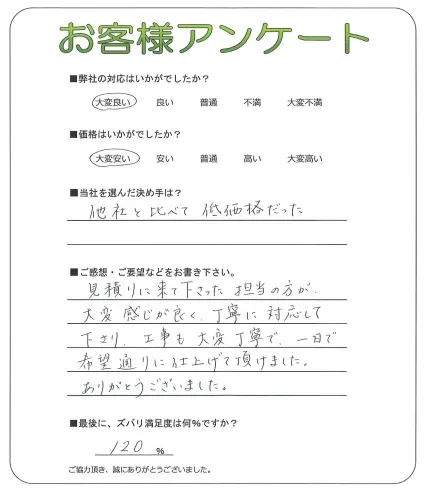 お客様アンケート
■弊社の対応はいかがでしたか?
大変良い 良い 普通 不満 大変不満
■価格はいかがでしたか?
大変安い 安い 普通 高い 大変高い
■当社を選んだ決め手は?
他社と比べて低価格だった
■ご感想・ご要望などをお書き下さい。
見積りに来て下さった担当の方が、
大変感じが良く、丁寧に対応して
下さり、工事も大変丁寧で、一日で
希望通りに仕上げて頂けました。
ありがとうございました。
■最後に、ズバリ満足度は何%ですか?
120 %
ご協力頂き、誠にありがとうございました。